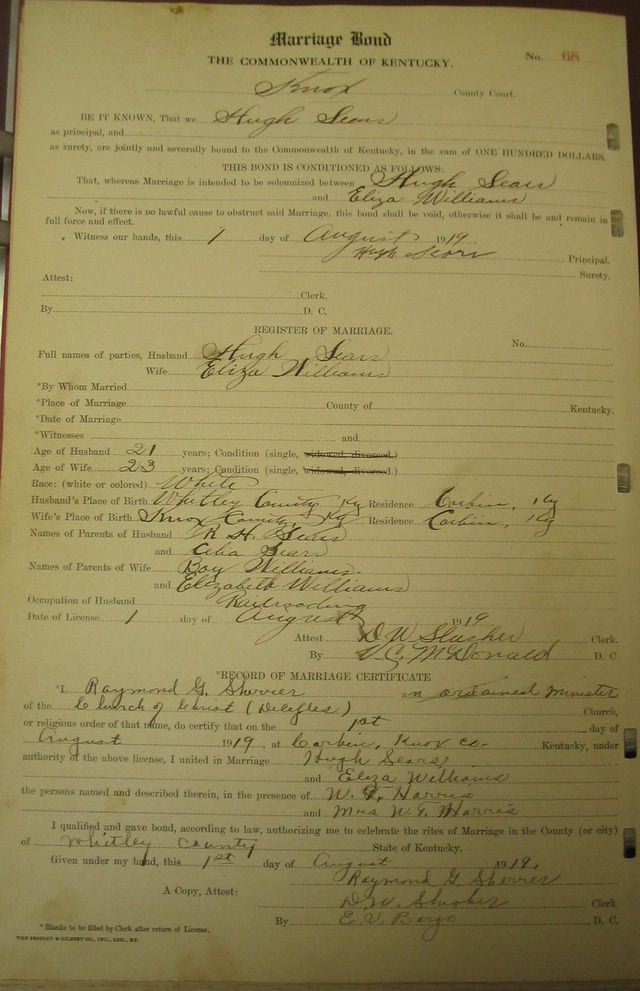 Marriage Bond
THE COMMONWEALTH OF KENTUCKY.
No. 68
Knox County Court.
BE IT KNOWN, That we Hugh Sears
as principal, and
as surety, are jointly and severally bound to the Commonwealth of Kentucky, in the sum of ONE HUNDRED DOLLARS.
THIS BOND IS CONDITIONED AS FOLLOWS:
That, whereas Marriage is intended to be solemnized between Hugh Sears
and Eliza Williams
Now, if there is no lawful cause to obstruct said Marriage, this bond shall be void, otherwise it shall be and remain in
full force and effect.
Witness our hands, this 1 day of August 1919
Hugh Sears Principal.
Surety.
Attest:
Clerk.
By D. C.
REGISTER OF MARRIAGE.
No.
Full names of parties, Husband Hugh Sears
Wife Eliza Williams
*By Whom Married
*Place of Marriage County of Kentucky.
*Date of Marriage
*Witnesses and
Age of Husband 21 years; Condition (single, widowed, divorced.)
Age of Wife 23 years; Condition (single, widowed, divorced.)
Race: (white or colored) White
Husband's Place of Birth Whitley County, Ky Residence Corbin, Ky
Wife's Place of Birth Knox County, Ky Residence Corbin, Ky
Names of Parents of Husband R. H. Sears
and Celia Sears
Names of Parents of Wife Roy Williams.
and Elizabeth Williams
Occupation of Husband Railroading
Date of License 1 day of August 1919
Attest D W Slusher Clerk.
By V. C. McDonald D. C
*RECORD OF MARRIAGE CERTIFICATE
*I, Raymond G. Sherrer an ordained minister
of the Church of Christ Church,
or religious order of that name, do certify that on the 1st day of
August 1919, at Corbin, Knox Co. Kentucky, under
authority of the above license, I united in Marriage Hugh Sears
and Eliza Williams
the persons named and described therein, in the presence of W. T. Harris
and Mrs W. T. Harris
I qualified and gave bond, according to law, authorizing me to celebrate the rites of Marriage in the County (or city)
of Whitley County State of Kentucky.
Given under my hand, this 1st day of August 1919.
Raymond G. Sherrer
A Copy, Attest: D. W. Slusher Clerk.
By E. V. Bargo D. C.
*Blanks to be filled by Clerk after return of License.
THE BRADLEY & GILBERT CO., INC., LOU., KY.